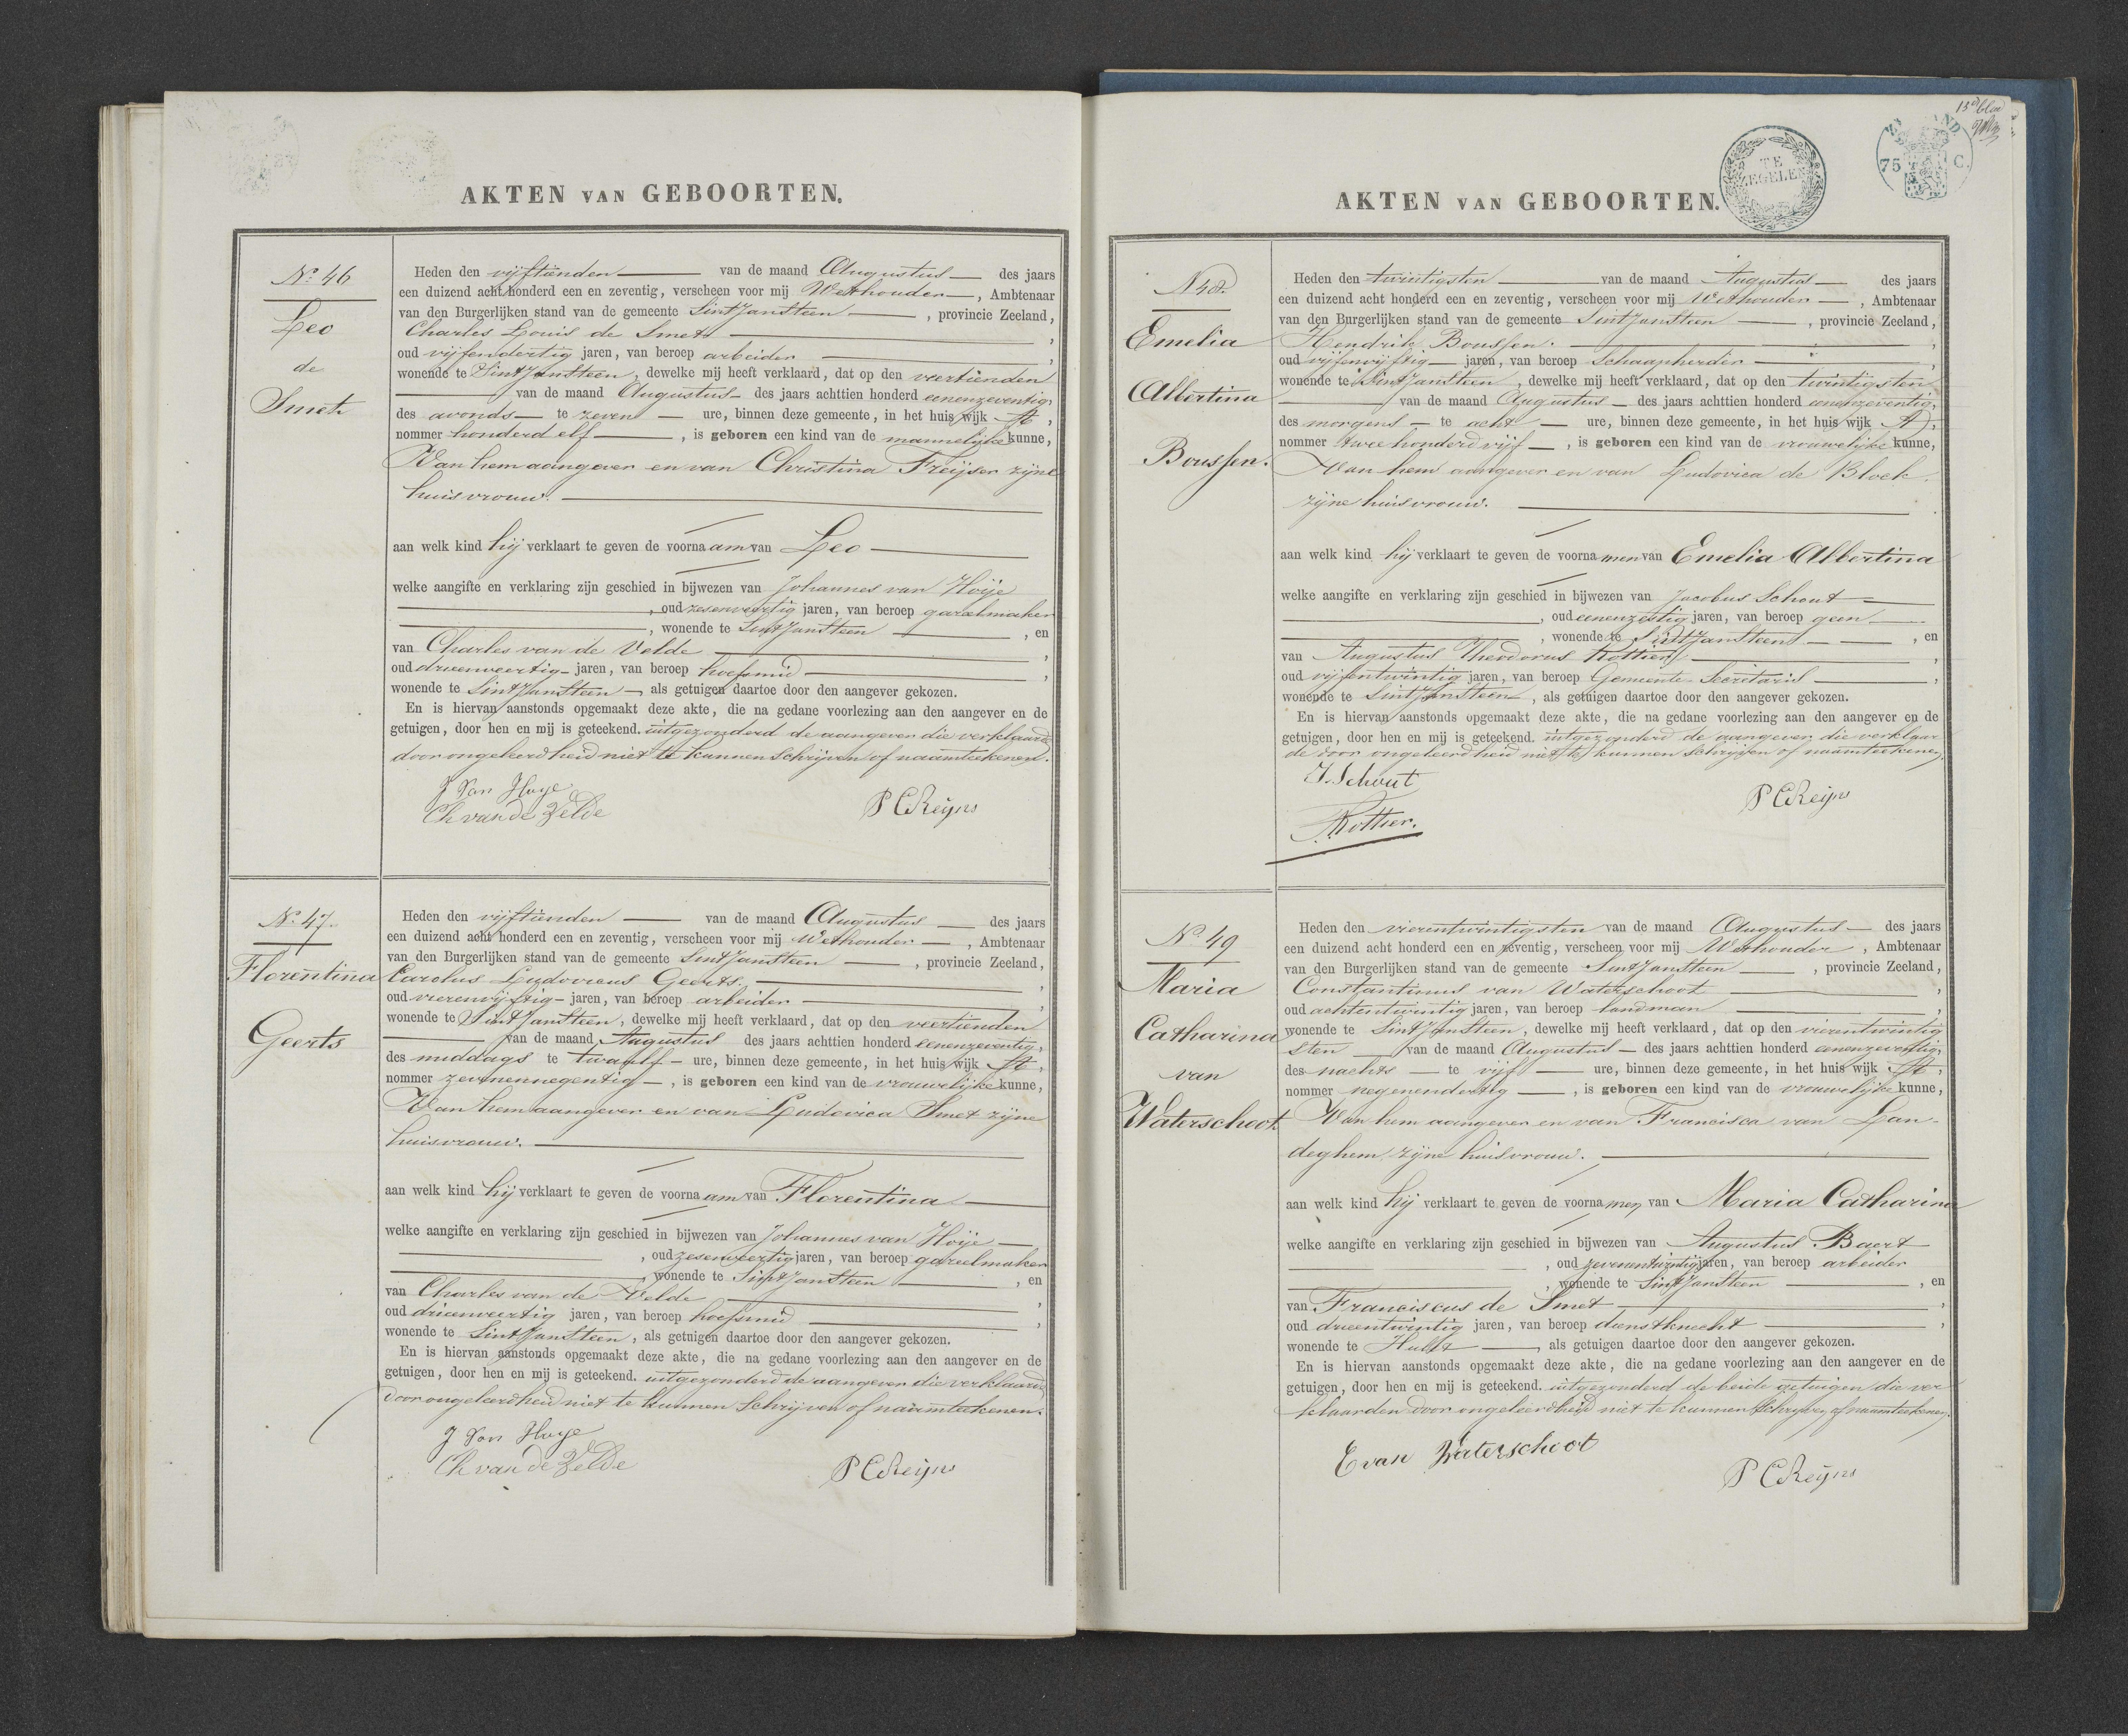 AKTEN VAN GEBOORTEN.
No. 46
Leo
de
Smet
Heden den vijftienden van de maand Augustus des jaars
een duizend acht honderd een en zeventig, verscheen voor mij Wethouder, Ambtenaar
van den Burgerlijken stand van de gemeente Sint Jansteen, provincie Zeeland,
Charles Louis de Smet,
oud vijfendertig jaren, van beroep arbeider,
wonende te Sint Jansteen, dewelke mij heeft verklaard, dat op den veertienden
van de maand Augustus des jaars achttien honderd eenenzeventig,
des avonds te zeven ure, binnen deze gemeente, in het huis wijk A,
nommer honderd elf, is geboren een kind van de mannelijke kunne,
Van hem aangever en van Christina Freijser zijne
huisvrouw.
aan welk kind hij verklaart te geven de voornaam van Leo
welke aangifte en verklaring zijn geschied in bijwezen van Johannes van Hoije
, oud zesenveertig jaren, van beroep gareelmaker
, wonende te Sint Jansteen, en
van Charles van de Velde,
oud drieenveertig jaren, van beroep hoefsmid,
wonende te Sint Jansteen als getuigen daartoe door den aangever gekozen.
En is hiervan aanstonds opgemaakt deze akte, die na gedane voorlezing aan den aangever en de
getuigen, door hen en mij is geteekend. uitgezonderd de aangever die verklaarde
door ongeleerdheid niet te kunnen schrijven of naamteekenen.
J Van Hoye
Ch van de Velde
P C Reijns
No. 47.
Florentina
Geerts
Heden den vijftienden van de maand Augustus des jaars
een duizend acht honderd een en zeventig, verscheen voor mij Wethouder, Ambtenaar
van den Burgerlijken stand van de gemeente Sint Jansteen, provincie Zeeland,
Carolus Ludovicus Geerts.,
oud vierenvijftig jaren, van beroep arbeider,
wonende te Sint Jansteen, dewelke mij heeft verklaard, dat op den veertienden
van de maand Augustus des jaars achttien honderd eenenzeventig,
des middags te twaalf ure, binnen deze gemeente, in het huis wijk A,
nommer zevenennegentig, is geboren een kind van de vrouwelijke kunne,
Van hem aangever en van Ludovica Smet zijne
huisvrouw.
aan welk kind hij verklaart te geven de voornaam van Florentina
welke aangifte en verklaring zijn geschied in bijwezen van Johannes van Hoije
, oud zesenveertig jaren, van beroep gareelmaker
, wonende te Sint Jansteen, en
van Charles van de Velde,
oud drieenveertig jaren, van beroep hoefsmid,
wonende te Sint Jansteen, als getuigen daartoe door den aangever gekozen.
En is hiervan aanstonds opgemaakt deze akte, die na gedane voorlezing aan den aangever en de
getuigen, door hen en mij is geteekend. uitgezonderd de aangever die verklaarde
door ongeleerdheid niet te kunnen schrijven of naamteekenen.
J Van Hoye
Ch van de Velde
P C Reijns
15e blad
TE ZEGELEN
ZEELAND
75 C.
AKTEN VAN GEBOORTEN.
No 48.
Emelia
Albertina
Boussen.
Heden den twintigsten van de maand Augustus des jaars
een duizend acht honderd een en zeventig, verscheen voor mij Wethouder, Ambtenaar
van den Burgerlijken stand van de gemeente Sint Jansteen, provincie Zeeland,
Hendrik Boussen.,
oud vijfenvijftig jaren, van beroep schaapherder,
wonende te Sint Jansteen, dewelke mij heeft verklaard, dat op den twintigsten
van de maand Augustus des jaars achttien honderd eenenzeventig,
des morgens te acht ure, binnen deze gemeente, in het huis wijk A,
nommer twee honderd vijf, is geboren een kind van de vrouwelijke kunne,
Van hem aangever en van Ludovica de Block
zijne huisvrouw.
aan welk kind hij verklaart te geven de voornamen van Emelia Albertina
welke aangifte en verklaring zijn geschied in bijwezen van Jacobus Schout
, oud eenenzestig jaren, van beroep geen
, wonende te Sint Jansteen, en
van Augustus Theodorus Rottier,
oud vijfentwintig jaren, van beroep Gemeente-Secretaris,
wonende te Sint Jansteen, als getuigen daartoe door den aangever gekozen.
En is hiervan aanstonds opgemaakt deze akte, die na gedane voorlezing aan den aangever en de
getuigen, door hen en mij is geteekend. uitgezonderd de aangever die verklaar
de door ongeleerdheid niet te kunnen schrijven of naamteekenen.
J. Schout
Rottier.
P C Reijns
No. 49
Maria
Catharina
van
Waterschoot
Heden den vierentwintigsten van de maand Augustus des jaars
een duizend acht honderd een en zeventig, verscheen voor mij Wethouder, Ambtenaar
van den Burgerlijken stand van de gemeente Sint Jansteen, provincie Zeeland,
Constantinus van Waterschoot,
oud achtentwintig jaren, van beroep landman
wonende te Sint Jansteen, dewelke mij heeft verklaard, dat op den vierentwintig
sten van de maand Augustus des jaars achttien honderd eenenzeventig,
des nachts te vijf ure, binnen deze gemeente, in het huis wijk A,
nommer negenendertig, is geboren een kind van de vrouwelijke kunne,
Van hem aangever en van Francisca van Lan-
deghem zijne huisvrouw.
aan welk kind hij verklaart te geven de voornamen van Maria Catharina
welke aangifte en verklaring zijn geschied in bijwezen van Augustus Baert
, oud zevenentwintig jaren, van beroep arbeider
, wonende te Sint Jansteen, en
van Franciscus de Smet,
oud drieentwintig jaren, van beroep dienstknecht,
wonende te Hulst, als getuigen daartoe door den aangever gekozen.
En is hiervan aanstonds opgemaakt deze akte, die na gedane voorlezing aan den aangever en de
getuigen, door hen en mij is geteekend. uitgezonderd de beide getuigen die ver
klaarden door ongeleerdheid niet te kunnen schrijven of naamteekenen.
C van Waterschoot
P C Reijns